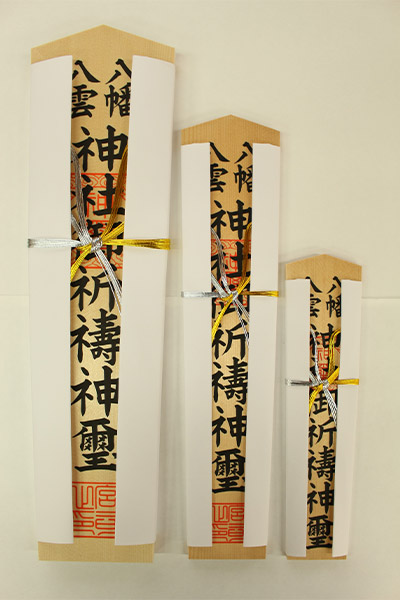 八幡
八雲
神社御祈禱神璽
八幡
八雲
神社御祈禱神璽
八幡
八雲
神社御祈禱神璽